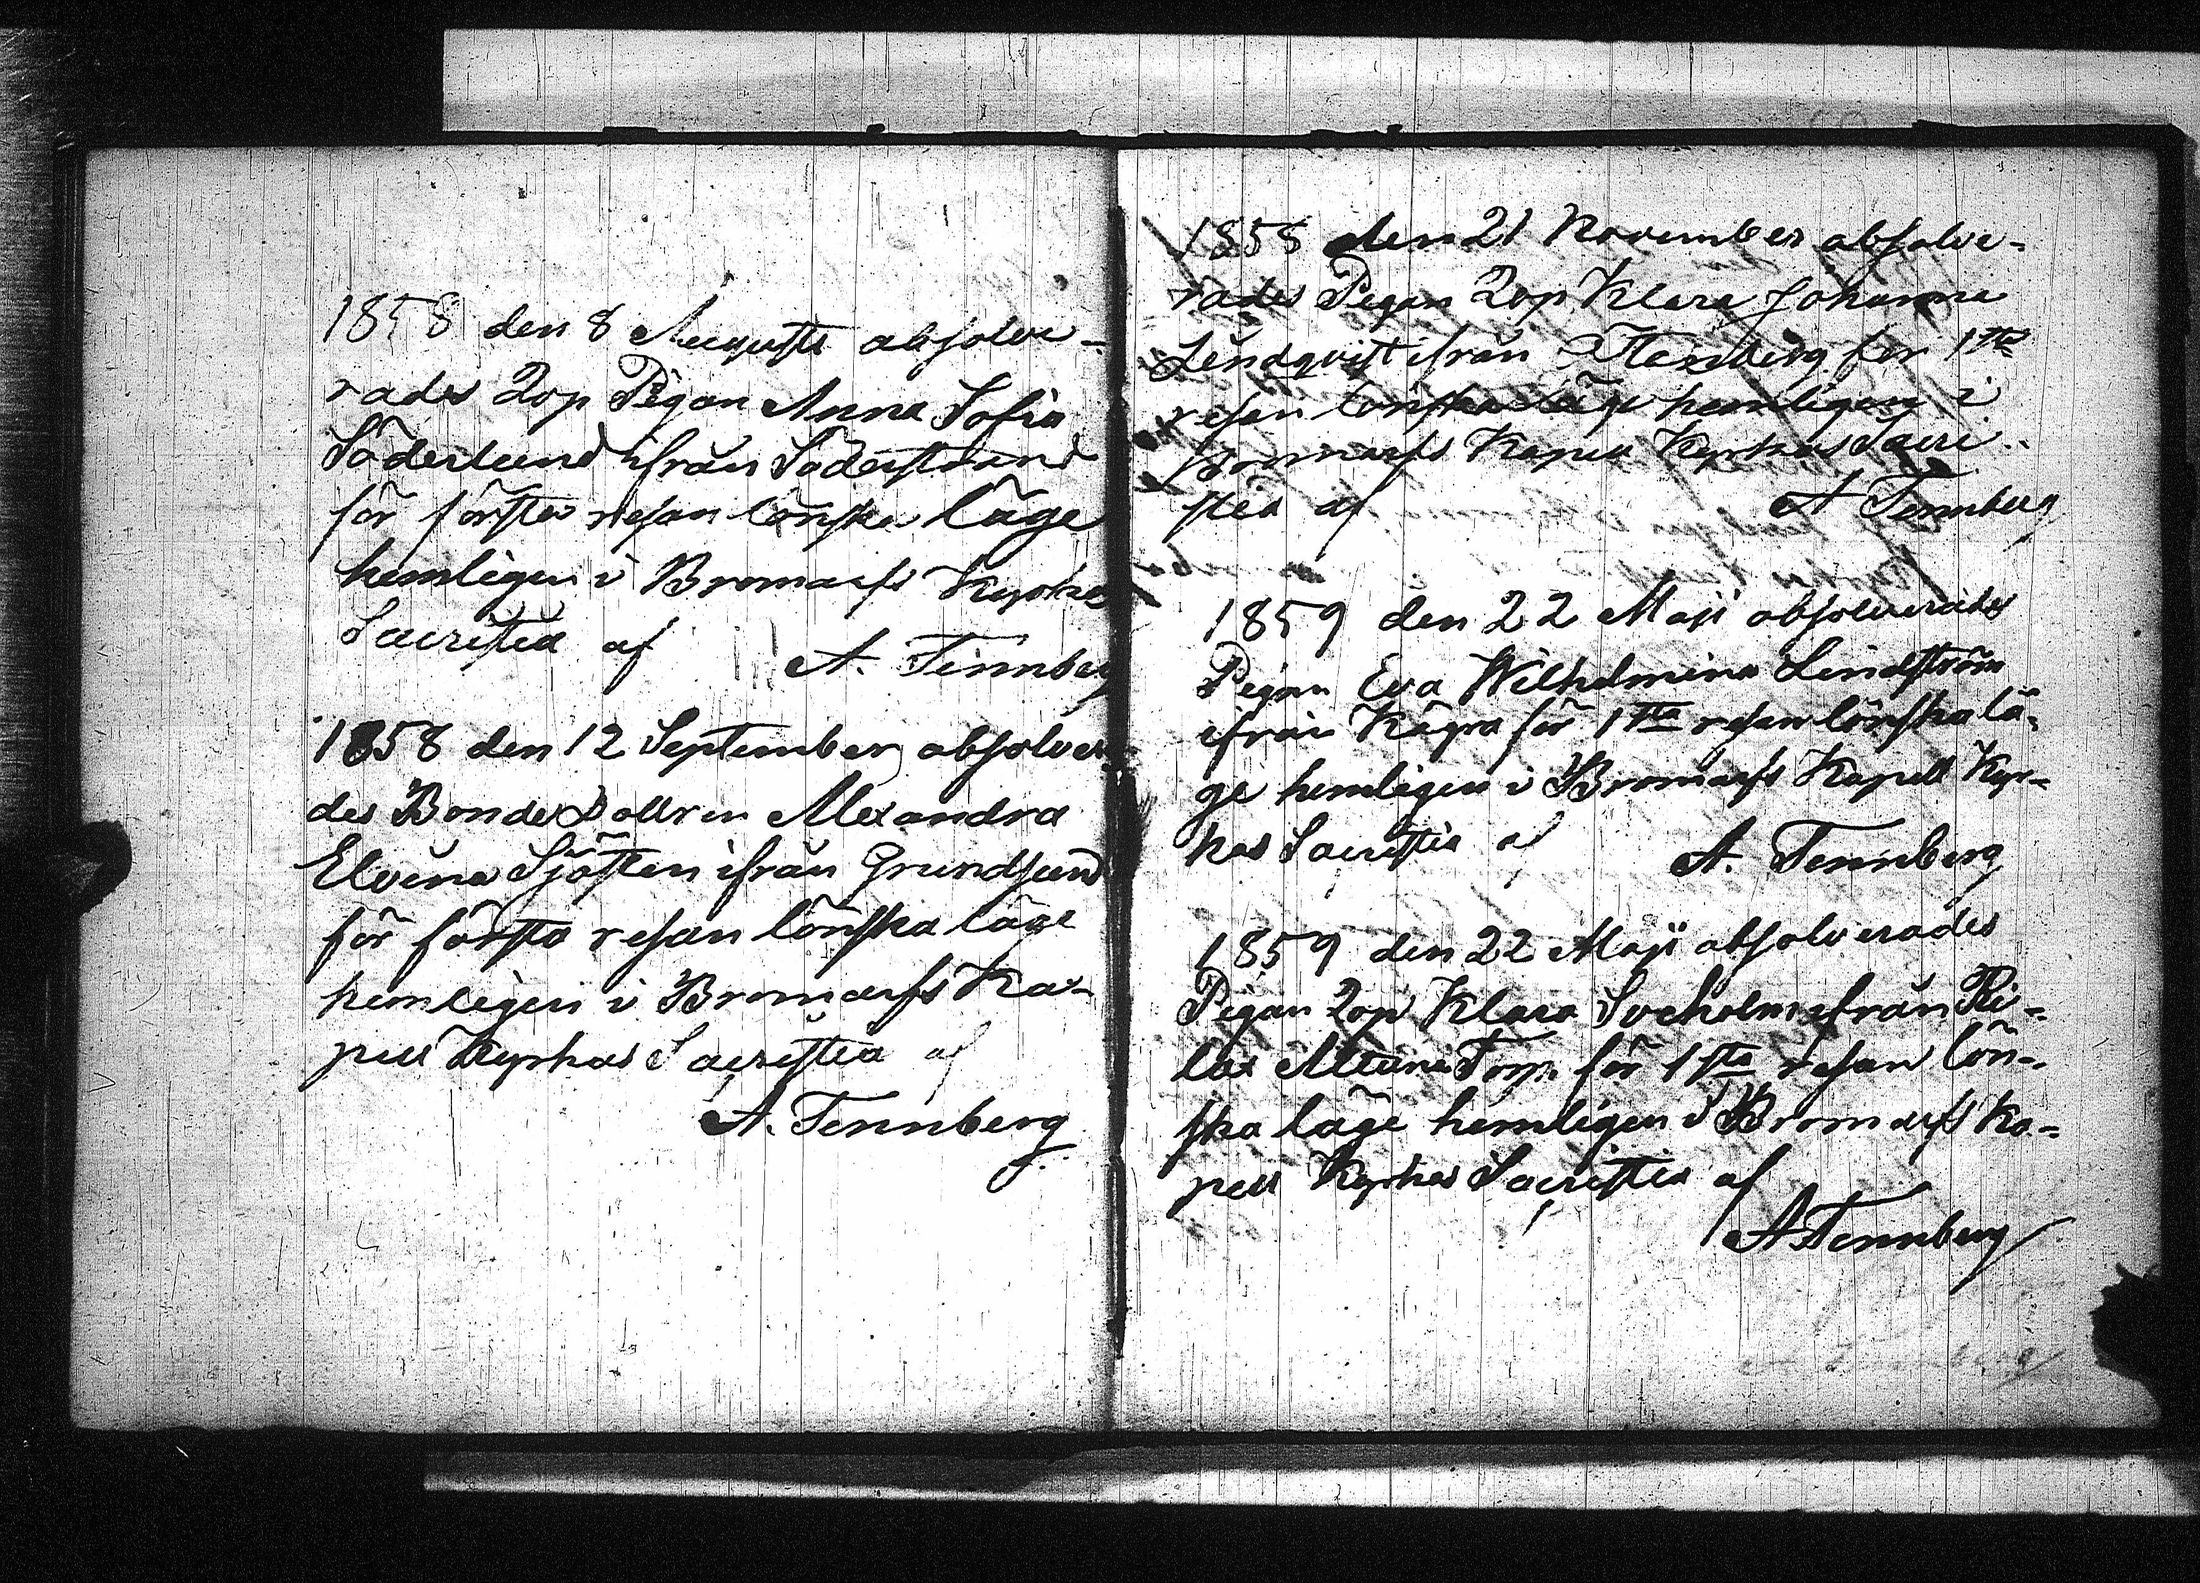 1858 den 8 Augusti absolve-
rades Qvp Pigan Anna Sofia
Söderlund ifrån Söderstrand
för första resan lönska läge
hemligen i Bromarfs Kyrkas
Sacristia af A. Tennberg
1858 den 12 September absolvera
des Bonde Dottren Alexandra
Elvina Sjösten ifrån Grundsund
för första resan lönska läge
hemligen i Bromarfs Ka-
pell Kyrkas Sacristia af
A. Tennberg
1858 den 21 November absolve-
rades Pigan Qvp Klara Johanna
Lindqvist ifrån för 1sta
resan lönska läge hemligen i
Bromarfs Kapell Kyrkas Sacri-
stia af A Tennberg
1859 den 22 Maji absolverades
Pigan Eva Wilhelmina Lindström
ifrån Kägra för 1sta resan lönska lä-
ge hemligen i Bromarfs Kapell Kyr-
kas Sacristia af A. Tennberg
1859 den 22 Maji absolverades
Pigan Qvp Klara Sveholm ifrån Ri-
lax Torp för 1sta resan lön-
ska läge hemligen i Bromarfs Ka-
pell Kyrkas Sacristia af
A Tennberg